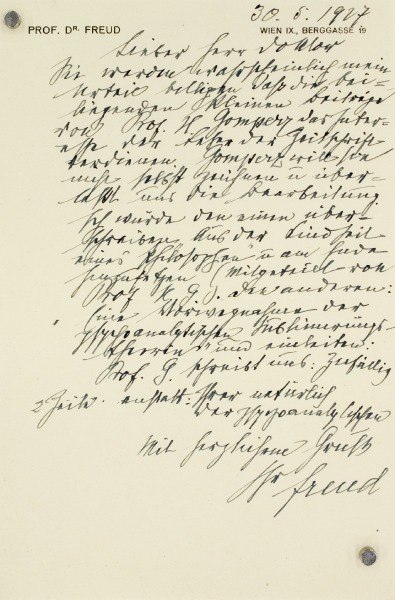 30. 5. 1927
PROF. DR. FREUD
WIEN IX., BERGGASSE 19
Lieber Herr Doktor
Sie werden wahrscheinlich mein
Urteil billigen daß die bei-
liegenden kleinen Beiträge
von Prof. H Gomperz das Inter-
esse der Leser der Zeitschrift
verdienen. Gomperz will sie
nicht selbst zeichnen u über-
läßt uns die Bearbeitung
Ich würde den einen über-
schreiben Aus der Kindheit
eines Philosophen u am Ende
hinzusetzen (Mitgeteilt von
Prof H. G.), den anderen:
Eine Vorwegnahme der
psychoanalytischen
und einleiten:
Prof. G. schreibt uns: Zufällig
2 Zeile anstatt: Ihrer natürlich
der psychoanalytischen
Mit herzlichem Gruß
Ihr Freud